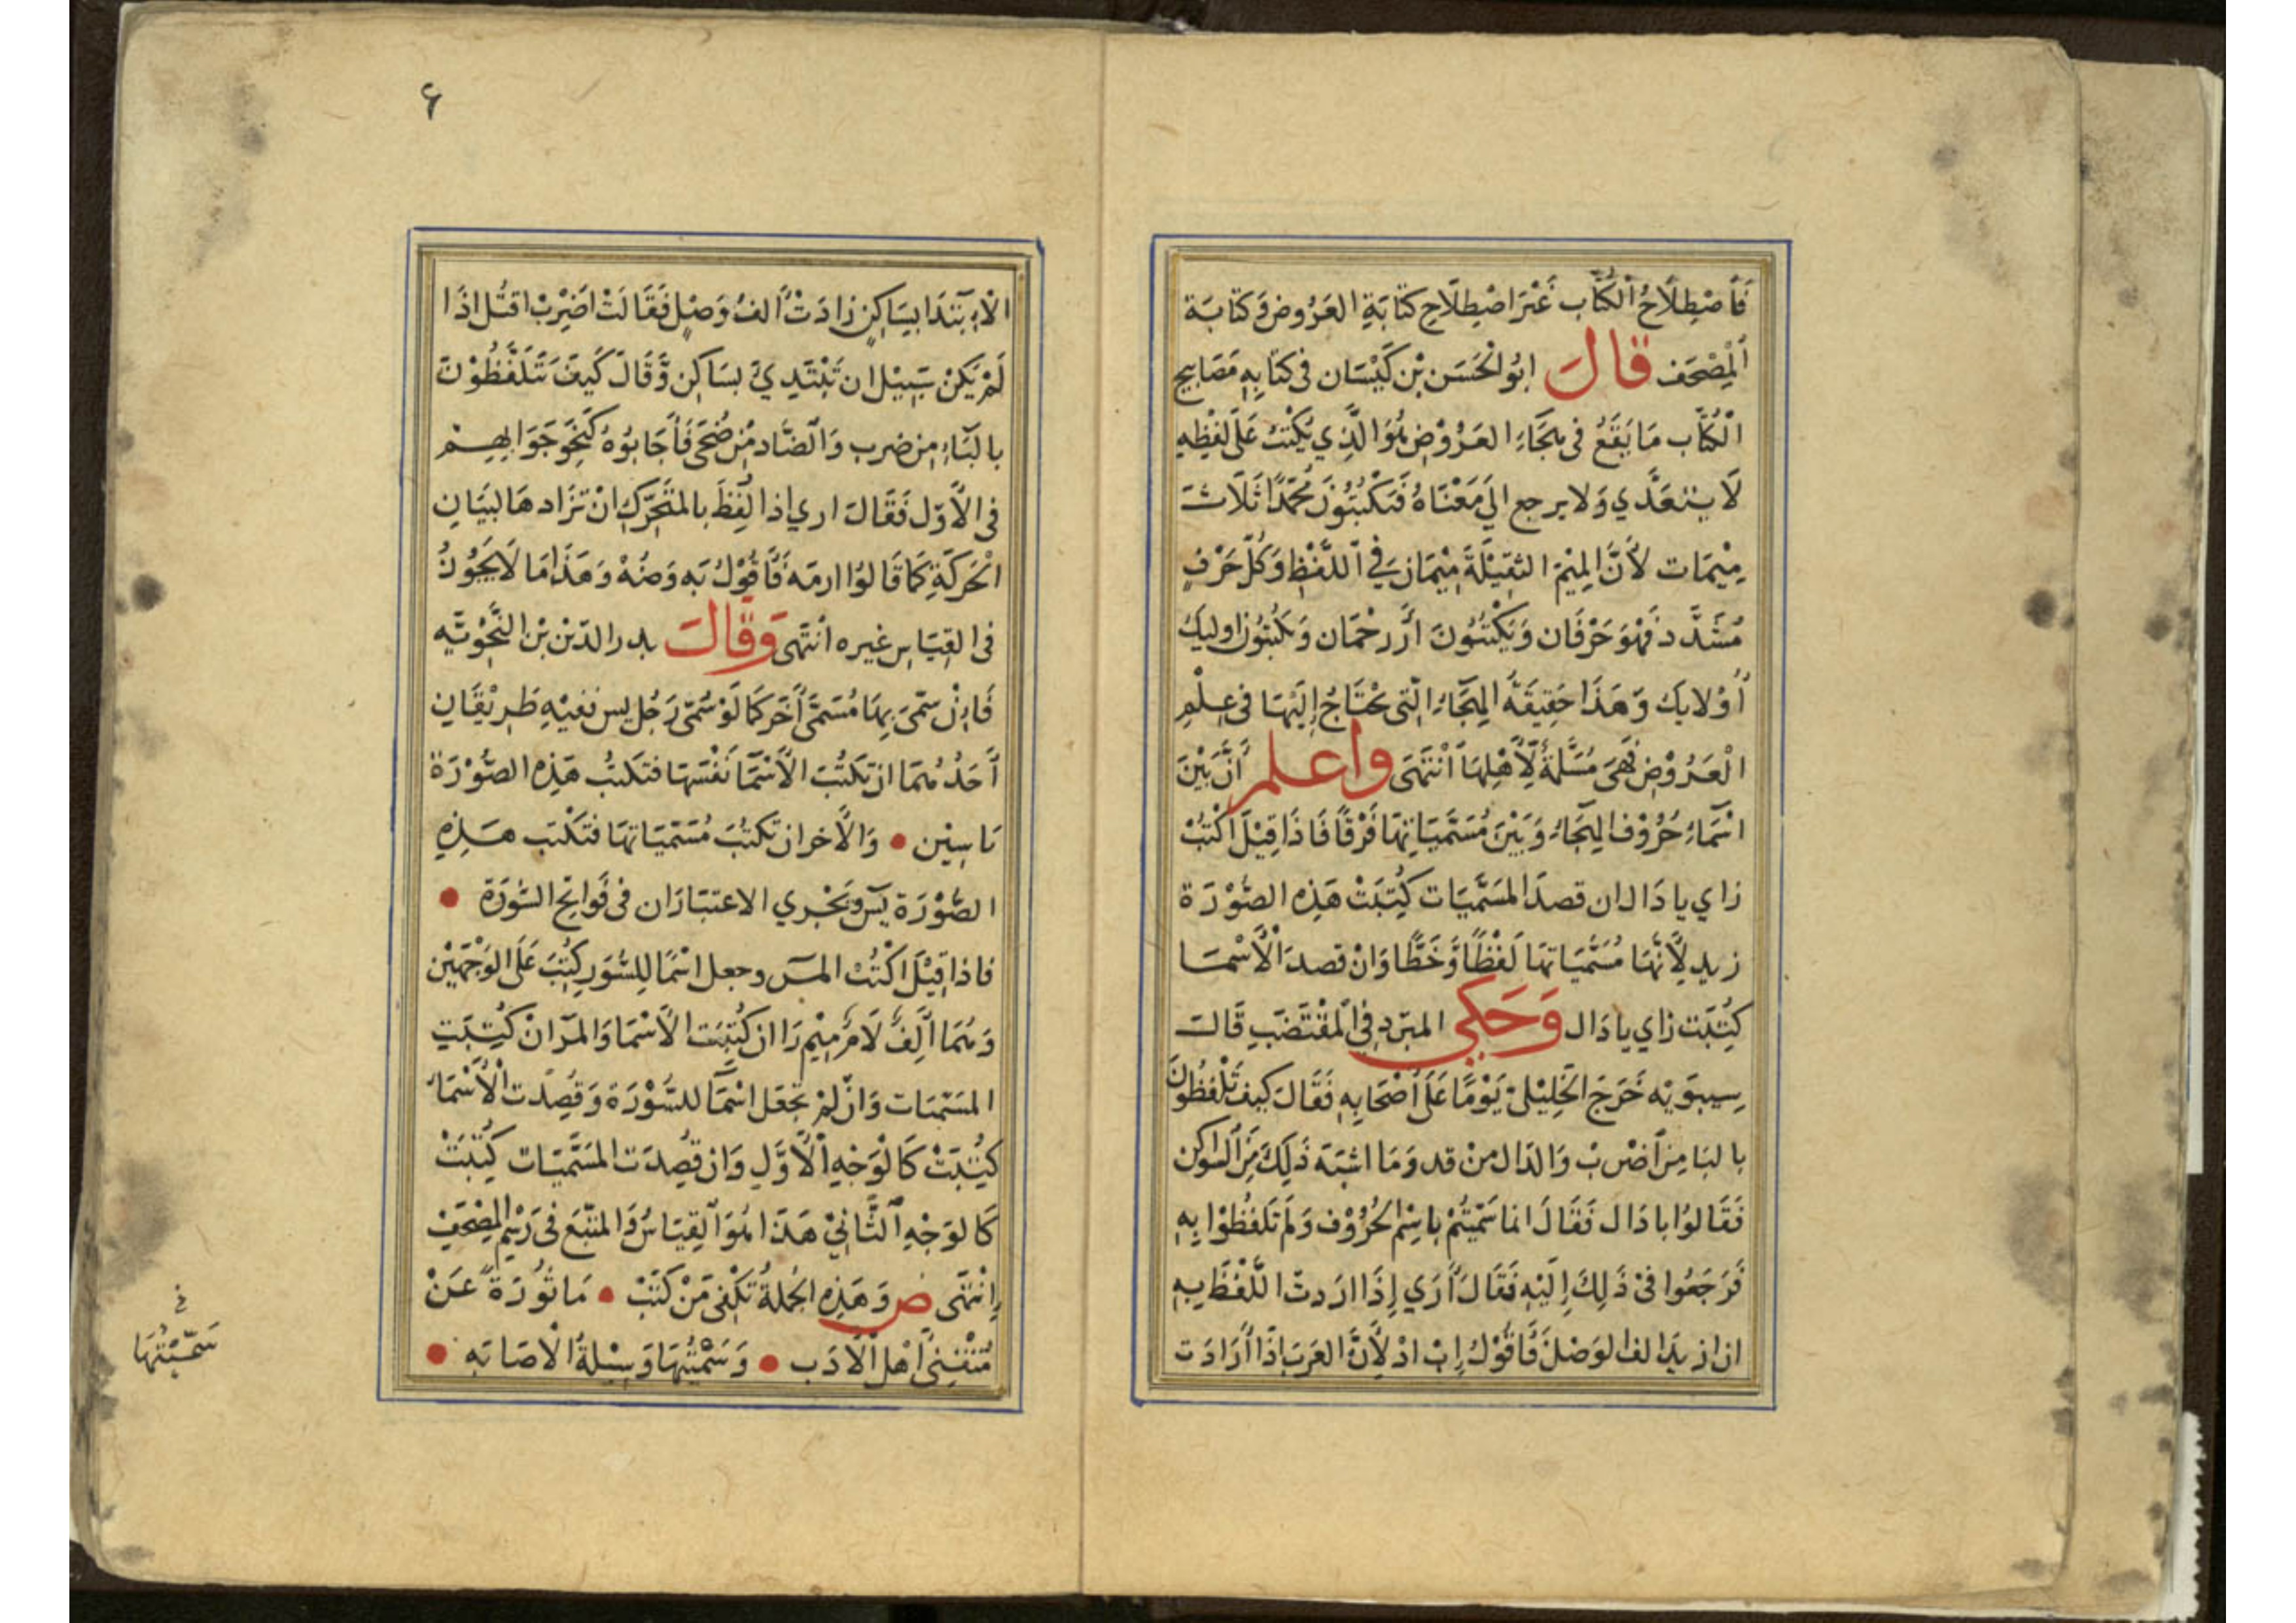 فَاصْطِلَاحُ الْكُتَّاب غَيْرَ اصْطِلَاحِ كِتَابَةِ العَرُوض وَكِتَابَة
الْمِصْحَف قَالَ ابُو الْحَسَن بْن كَيْسَان فى كِتَابِهِ مَصَابِيح
الْكُتَّاب مَا يَقَعُ فى هِجَاءِ العَرُوْض هُوَ الَّذِي يُكْتَبُ عَلَى لَفْظِهِ
لَا يتعَدَّي وَلا يرجع اليَ مَعْنَاهُ فَتَكْتُبُوْنَ مُحَمَّدًا ثَلَاثَ
مِيْمَات لأَنَّ المِيْمَ الثقِيْلَةَ مِيْمَان فِي اللَّفْظِ وَكُلُّ حَرْفٍ
مُشَدَّد فَهْوَ حَرْفَان وَيَكْتُبُونَ أَررحْمَان وَيكْتُبُوْن اوليك
أُوْلايكَ وَهَذَا حَقِيقَةُ الهِجَاءِ الّتى يحْتَاجُ إِلَيْهَا فى عِلْمِ
الْعَرُوْضِ فَهىَ مُسَلَّمَةٌ لِأَهْلِهَا انْتَهَى وَاعلم أَنَّ بَيْنَ
اسْمَاءِ حُرُوْفِ الهِجَاءِ وَبَيْنَ مُسَمَّيَاتِهَا فَرْقًا فَاذَا قِيْلَ اكْتُبْ
زاي يا دَال ان قصدَ المسَمَّيَات كُتِبَتْ هَذِهِ الصُّوْرَة
زيد لأَنَّهَا مُسَمَّيَاتهَا لَفْظًا وَّخَطًّا وَانْ قصدَ الْأَسْمَا
كُتِبَت زاي يا دَال وَحَكي المبَرّد فى المقْتَضَبِ قَالَ
سِيبَوَيْه خَرَجَ الخَلِيْل يَوْمًا عَلَى أَصْحَابِهِ فَقَالَ كيفَ تَلْفظُونَ
بالبَا مِنَ اضْربْ وَالدَال منْ قد وَمَا اشْبَهَ ذَلِكَ مِنَ السَوَاكن
فَقَالوُا با دَال فَقَالَ انمَا سَمَّيْتُمْ باسِمْ الحُرُوْف وَلَمْ تَلفُظُوا بِهِ
فَرَجَعُوا فىْ ذَلِكَ إِلَيْهِ فَقَالَ أَرَي إِذَا اردتَ اللَّفْظَ بِهِ
ان ازيدَ الف الوَصْلَ فَأقُوْلُ إِبْ ادْ لِأَنَّ العَرَبَ اذَا أَرَادَت
٤
الاِبْتِدَا بِسَاكِنٍ زادَتْ أَلفُ وَصْلٍ فَقَالَتْ اضْرِبْ اقتُل اذَا
لَمْ يَكنْ سَبِيْل ان تَبْتَدِيْ بسَاكنٍ وَّقَالَ كَيفَ تَلفُظُوْنَ
بالبَاءِ مِن ضرب وَالضَّاد مْن ضُحَى فَأَجَابُوهُ كَنَحْو جَوَابِهِمْ
فى الأَوّل فَقَالَ اري اذا لُفِظَ بالمتَحَرّكِ انْ تزَاد هَا لبَيَانِ
الْحَرَكَةِ كَمَا قَالوُا ارمَه فَأقُوْلُ بَهِ وَضُهْ وَهَذَا مَا لَا يَجُوْزُ
فى القِيَاس غيره انتَهى وَقَالَ بدر الدّيْن بْن النَّحْوِيَّه
فَاِنْ سَمّىَ بِهَا مُسَمَّى أَخَر كَمَا لَوْ سُمّى رَجُل يس ففيْهِ طَرِيْقَانِ
أَحَدُهُمَا ان تكتُبَ الأَسْمَا نَفْسَهَا فتَكتبُ هَذِهِ الصُّوْرَة
يَاسِيْن • وَالأَخر ان تكتُبَ مُسَمَّيَاتهَا فتَكْتَب هَذِهِ
الصُّوْرَة يسَ وَيَجْري الاعتبَارَان فى فَوَاتح السُّوَرَة •
فاذا قِيْلَ اكْتُبْ المرَ وجعل اسْمًا لِلسُّوَرِ كُتِبَ عَلَى الوَجْهَيْن
وَهُمَا أَلِفْ لَامْ مِيْم رَا ان كُتِبَت الأَسْمَا وَالمرَ انْ كُتِبَتِ
المسَمّيَات وَانْ لمْ تجْعَل اسْمًا للسُّوْرَة وَقُصِدَت الْأَسْمَاء
كُتِبَتْ كَالْوَجْهِ الأَوَّلِ وَان قُصِدَت المسَمَّيَات كُتِبَتْ
كَالوَجْهِ الثَّانِيْ هَذَا هُوَ القِيَاسُ وَالمتّبَعَ فى رَسْمِ المِصْحَفِ
اِنْتَهَى ص وَهَذِهِ الجُملَةُ تكْفِى مَنْ كَتَبْ • مَاثُوْرَةً عَنْ
مُتْقِنِىْ أَهْلِ الْأَدَب • وَسَمَّيْتُهَا وَسِيْلَةُ الْاصَابَه •
فى
سَمَّيْتُهَا